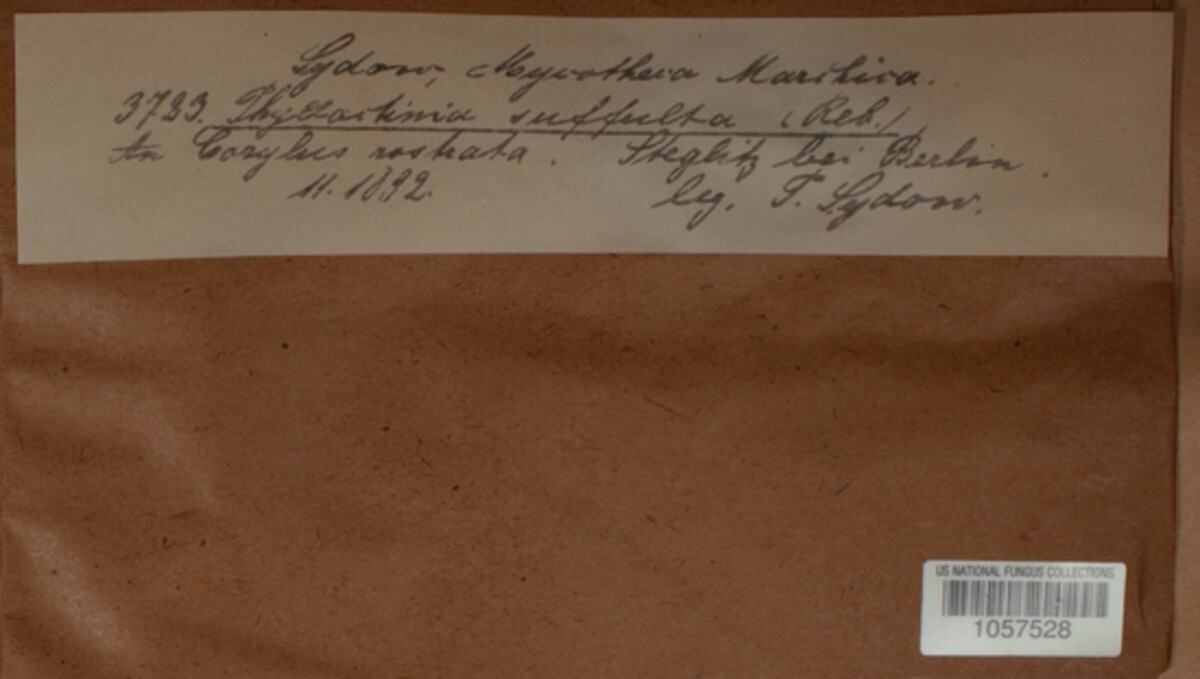 Sydow, Mycotheca Marchica.
3723. Phyllactinia suffulta (Reb.)
An Corylus rostrata. Steglitz bei Berlin.
11. 1892. leg. P. Sydow.
US NATIONAL FUNGUS COLLECTIONS
1057528